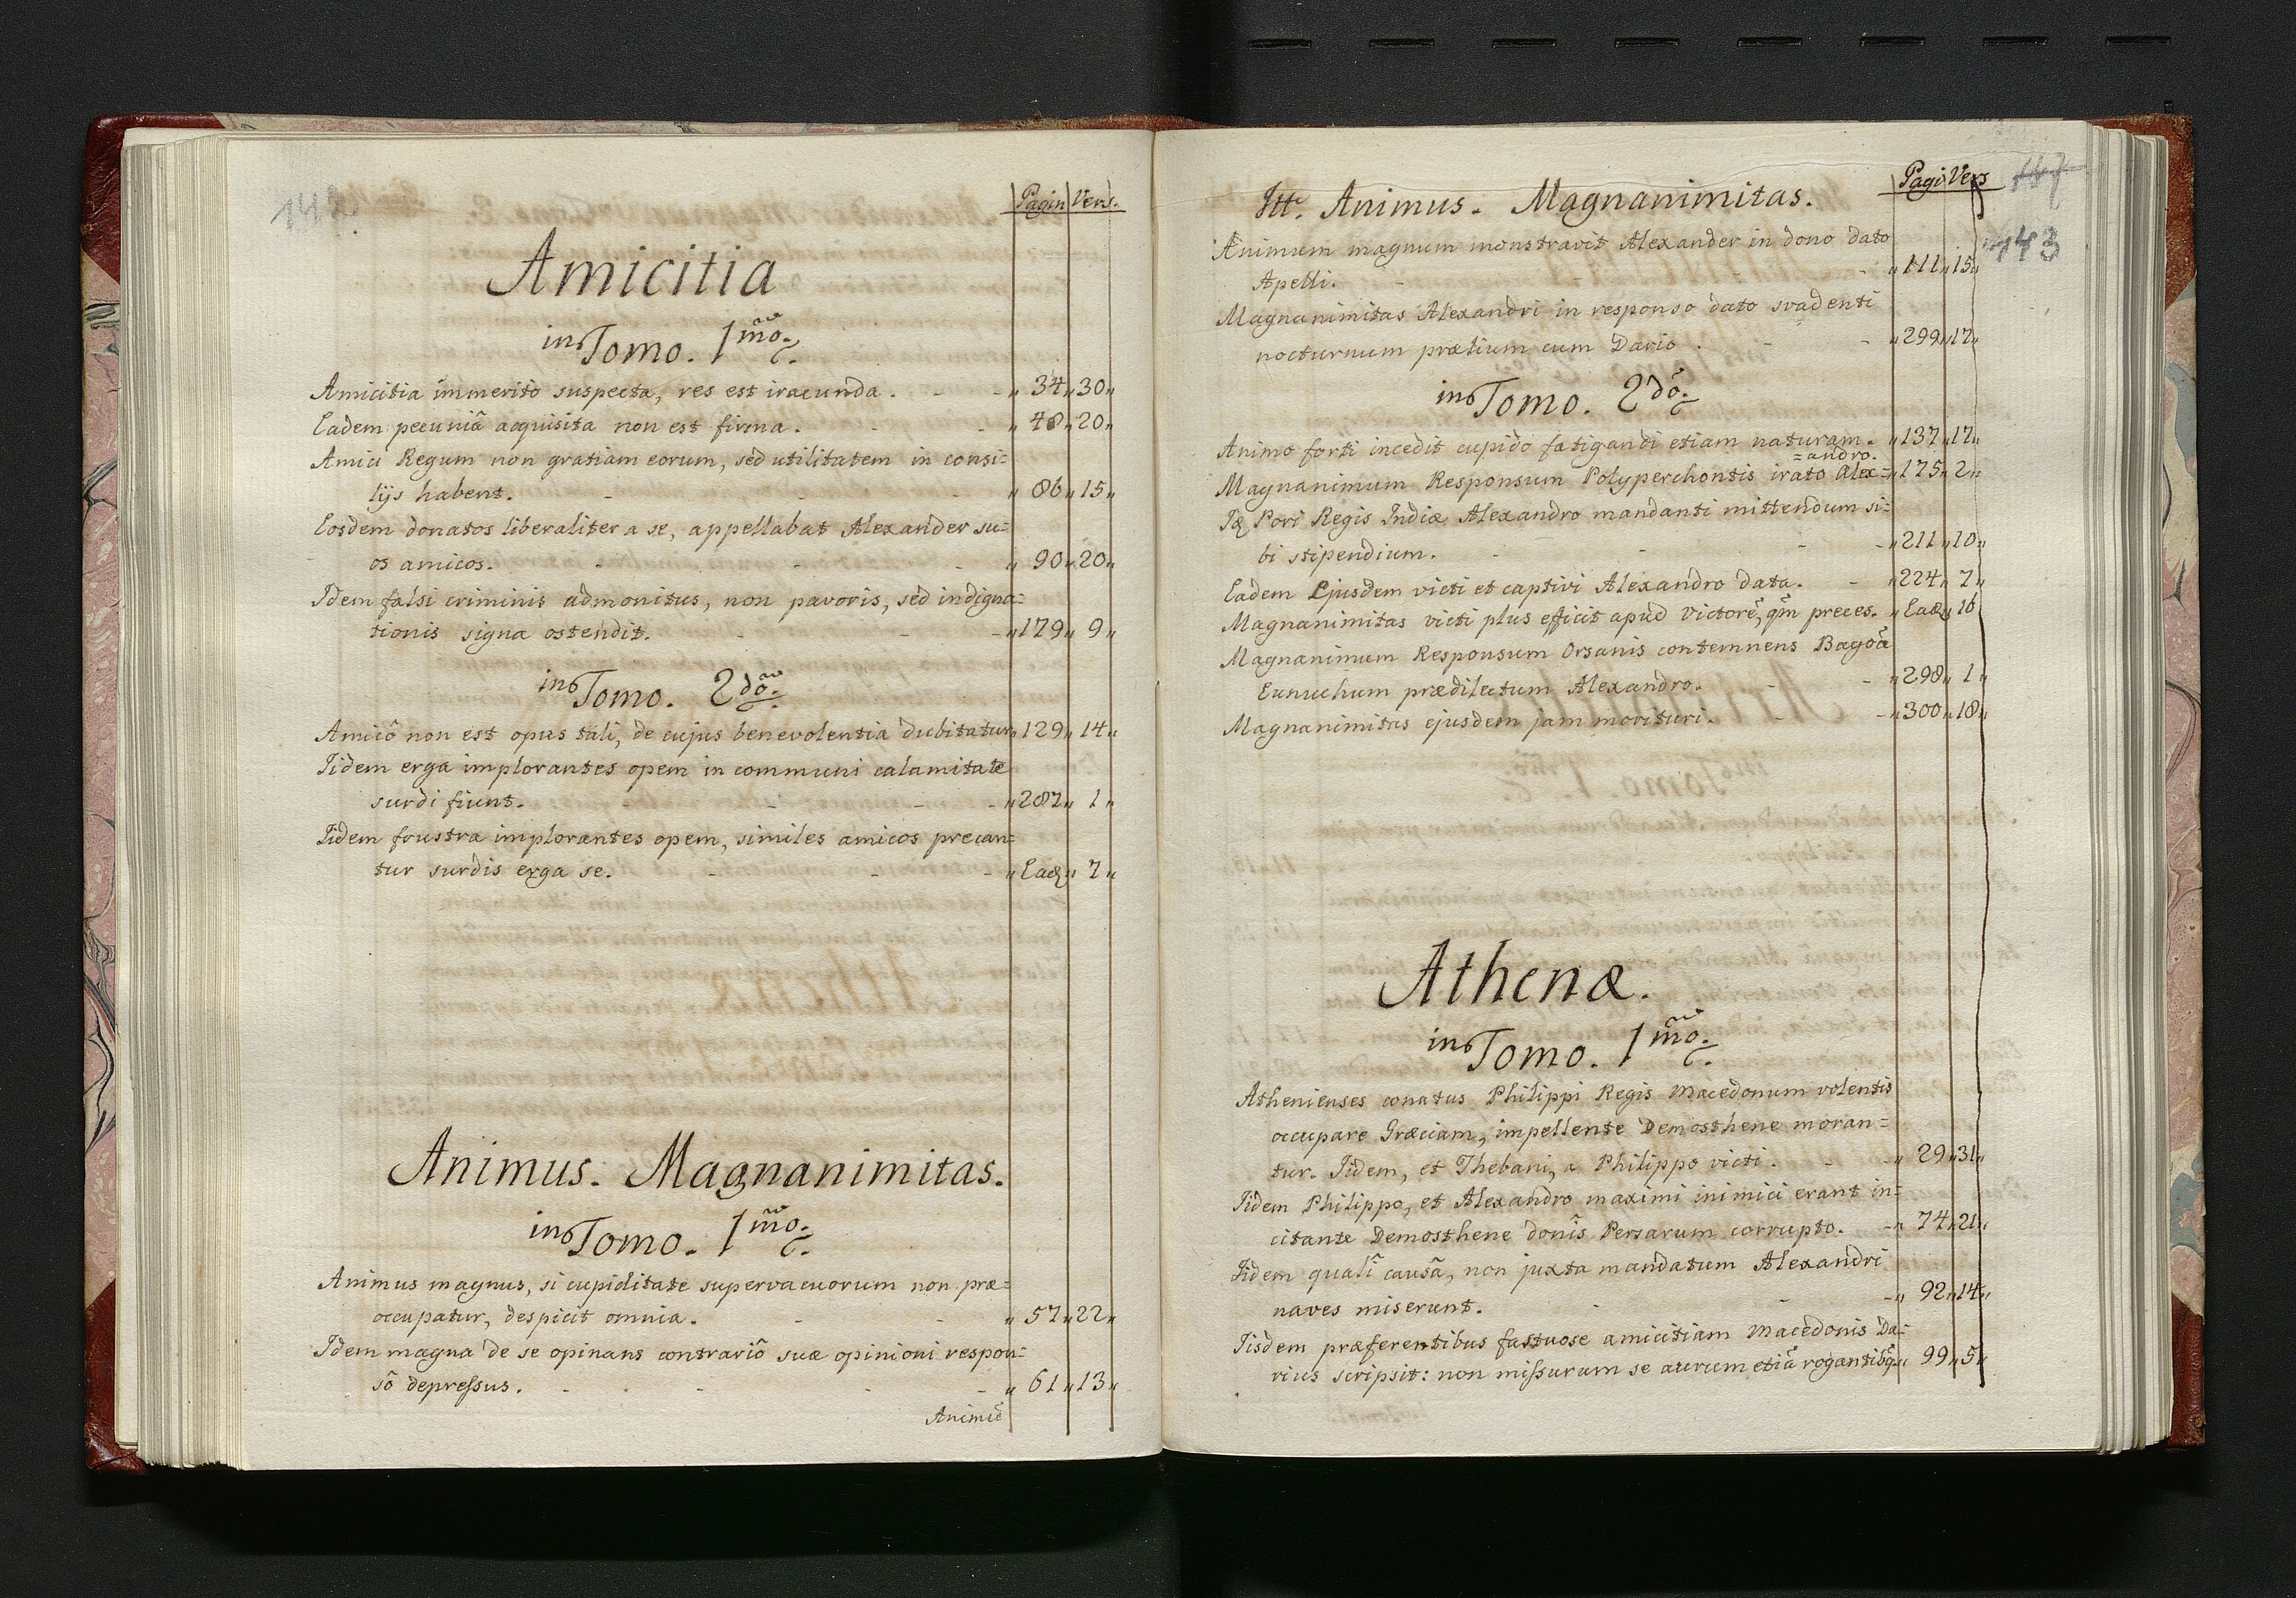 142.
Pagin Vers.
Amicitia
in Tomo. 1mo.
Amicitia immerito suspecta, res est iracunda. - - „ 34 „ 30 „
Eadem pecuniâ acquisita non est firma. - - „ 48 „ 20 „
Amici Regum non gratiam eorum, sed utilitatem in consi=
lijs habent. - - - „ 86 „ 15 „
Eosdem donatos liberaliter a se, appellabat Alexander su=
os amicos. - - - „ 90 „ 20 „
Idem falsi criminis admonitus, non pavoris, sed indigna=
tionis signa ostendit. - - - „ 179 „ 9 „
in Tomo. 2do.
Amicô non est opus tali, de cujus benevolentia dubitatur „ 129 „ 14 „
Iidem erga implorantes opem in communi calamitate
surdi fiunt. - - - - „ 287 „ 1 „
Iidem frustra implorantes opem, similes amicos precan=
tur surdis erga se. - - - „ Eadꝫ „ 7 „
Animus. Magnanimitas.
in Tomo. 1mo.
Animus magnus, si cupiditate supervacuorum non præ=
occupatur, despicit omnia. - - „ 57 „ 22 „
Idem magna de se opinans contrariô suæ opinioni respon=
sô depressus. - - - - „ 61 „ 13 „
Animũ
Pagi Vers
143
Itt. Animus. Magnanimitas.
Animum magnum monstravit Alexander in dono dato
Apelli. - - - „ 111 „ 15 „
Magnanimitas Alexandri in responso dato svadenti
nocturnum prælium cum Dario. - - „ 299 „ 17 „
in Tomo. 2dô.
Animo forti incedit cupido fatigandi etiam naturam. „ 137 „ 17 „
=andro.
Magnanimum Responsum Polyperchontis irato Alex= „ 175 „ 2 „
Iꝫ Pori Regis Indiæ Alexandro mandanti mittendum si=
bi stipendium. - - - „ 211 „ 10 „
Eadem Ejusdem victi et captivi Alexandro data. - „ 224 „ 7 „
Magnanimitas victi plus efficit apud victorẽ, qm̃ preces. „ Eadꝫ 16
Magnanimum Responsum Orsanis contemnens Bagoã
Eunuchum prædilectum Alexandro. - - „ 298 „ 1 „
Magnanimitas ejusdem jam morituri. - - „ 300 „ 18 „
Athenæ.
in Tomo. 1mo.
Athenienses conatus Philippi Regis Macedonum volentis
occupare Græciam, impellente Demosthene moran=
tur. Iidem, et Thebani, a Philippo victi. - - „ 29 „ 31 „
Iidem Philippo, et Alexandro maximi inimici erant in=
citante Demosthene donîs Persarum corrupto. - „ 74 „ 21 „
Iidem quali causâ, non juxta mandatum Alexandri
naves miserunt. - - - „ 92 „ 14 „
Iisdem præferentibus fastuose amicitiam Macedonis Da=
rius scripsit: non missurum se aurum etiã rogantibꝫ „ 99 „ 5 „